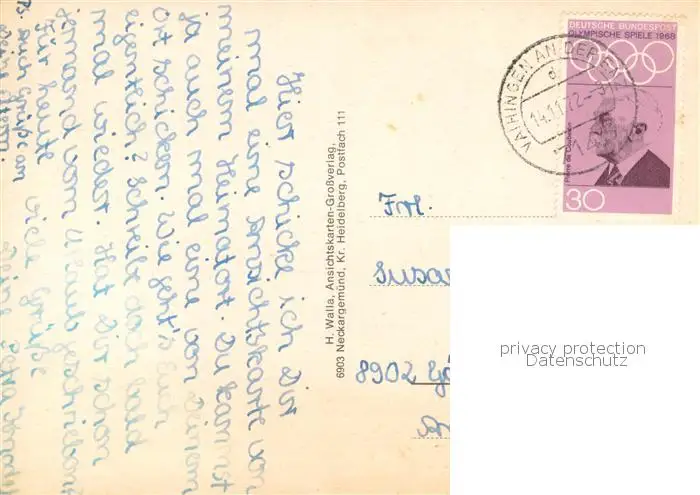 Hier schicke ich Dir
mal eine Ansichtskarte von
meinem Heimatort. Du kannst
ja auch mal eine von Deinem
Ort schicken. Wie geht's Euch
eigentlich? Schreibt doch bald
mal wieder. Hat Dir schon
jemand vom Urlaub geschrieben?
Für heute
viele Grüße
Deine Petra
P.S. Auch Grüße an
Deine Eltern.
H. Walla, Ansichtskarten-Großverlag,
6903 Neckargemünd, Kr. Heidelberg, Postfach 111
DEUTSCHE BUNDESPOST
OLYMPISCHE SPIELE 1968
Pierre de Coubertin
30
VAIHINGEN AN DER
d
14.11.72
Frl.
Susan
8902
privacy protection
Datenschutz